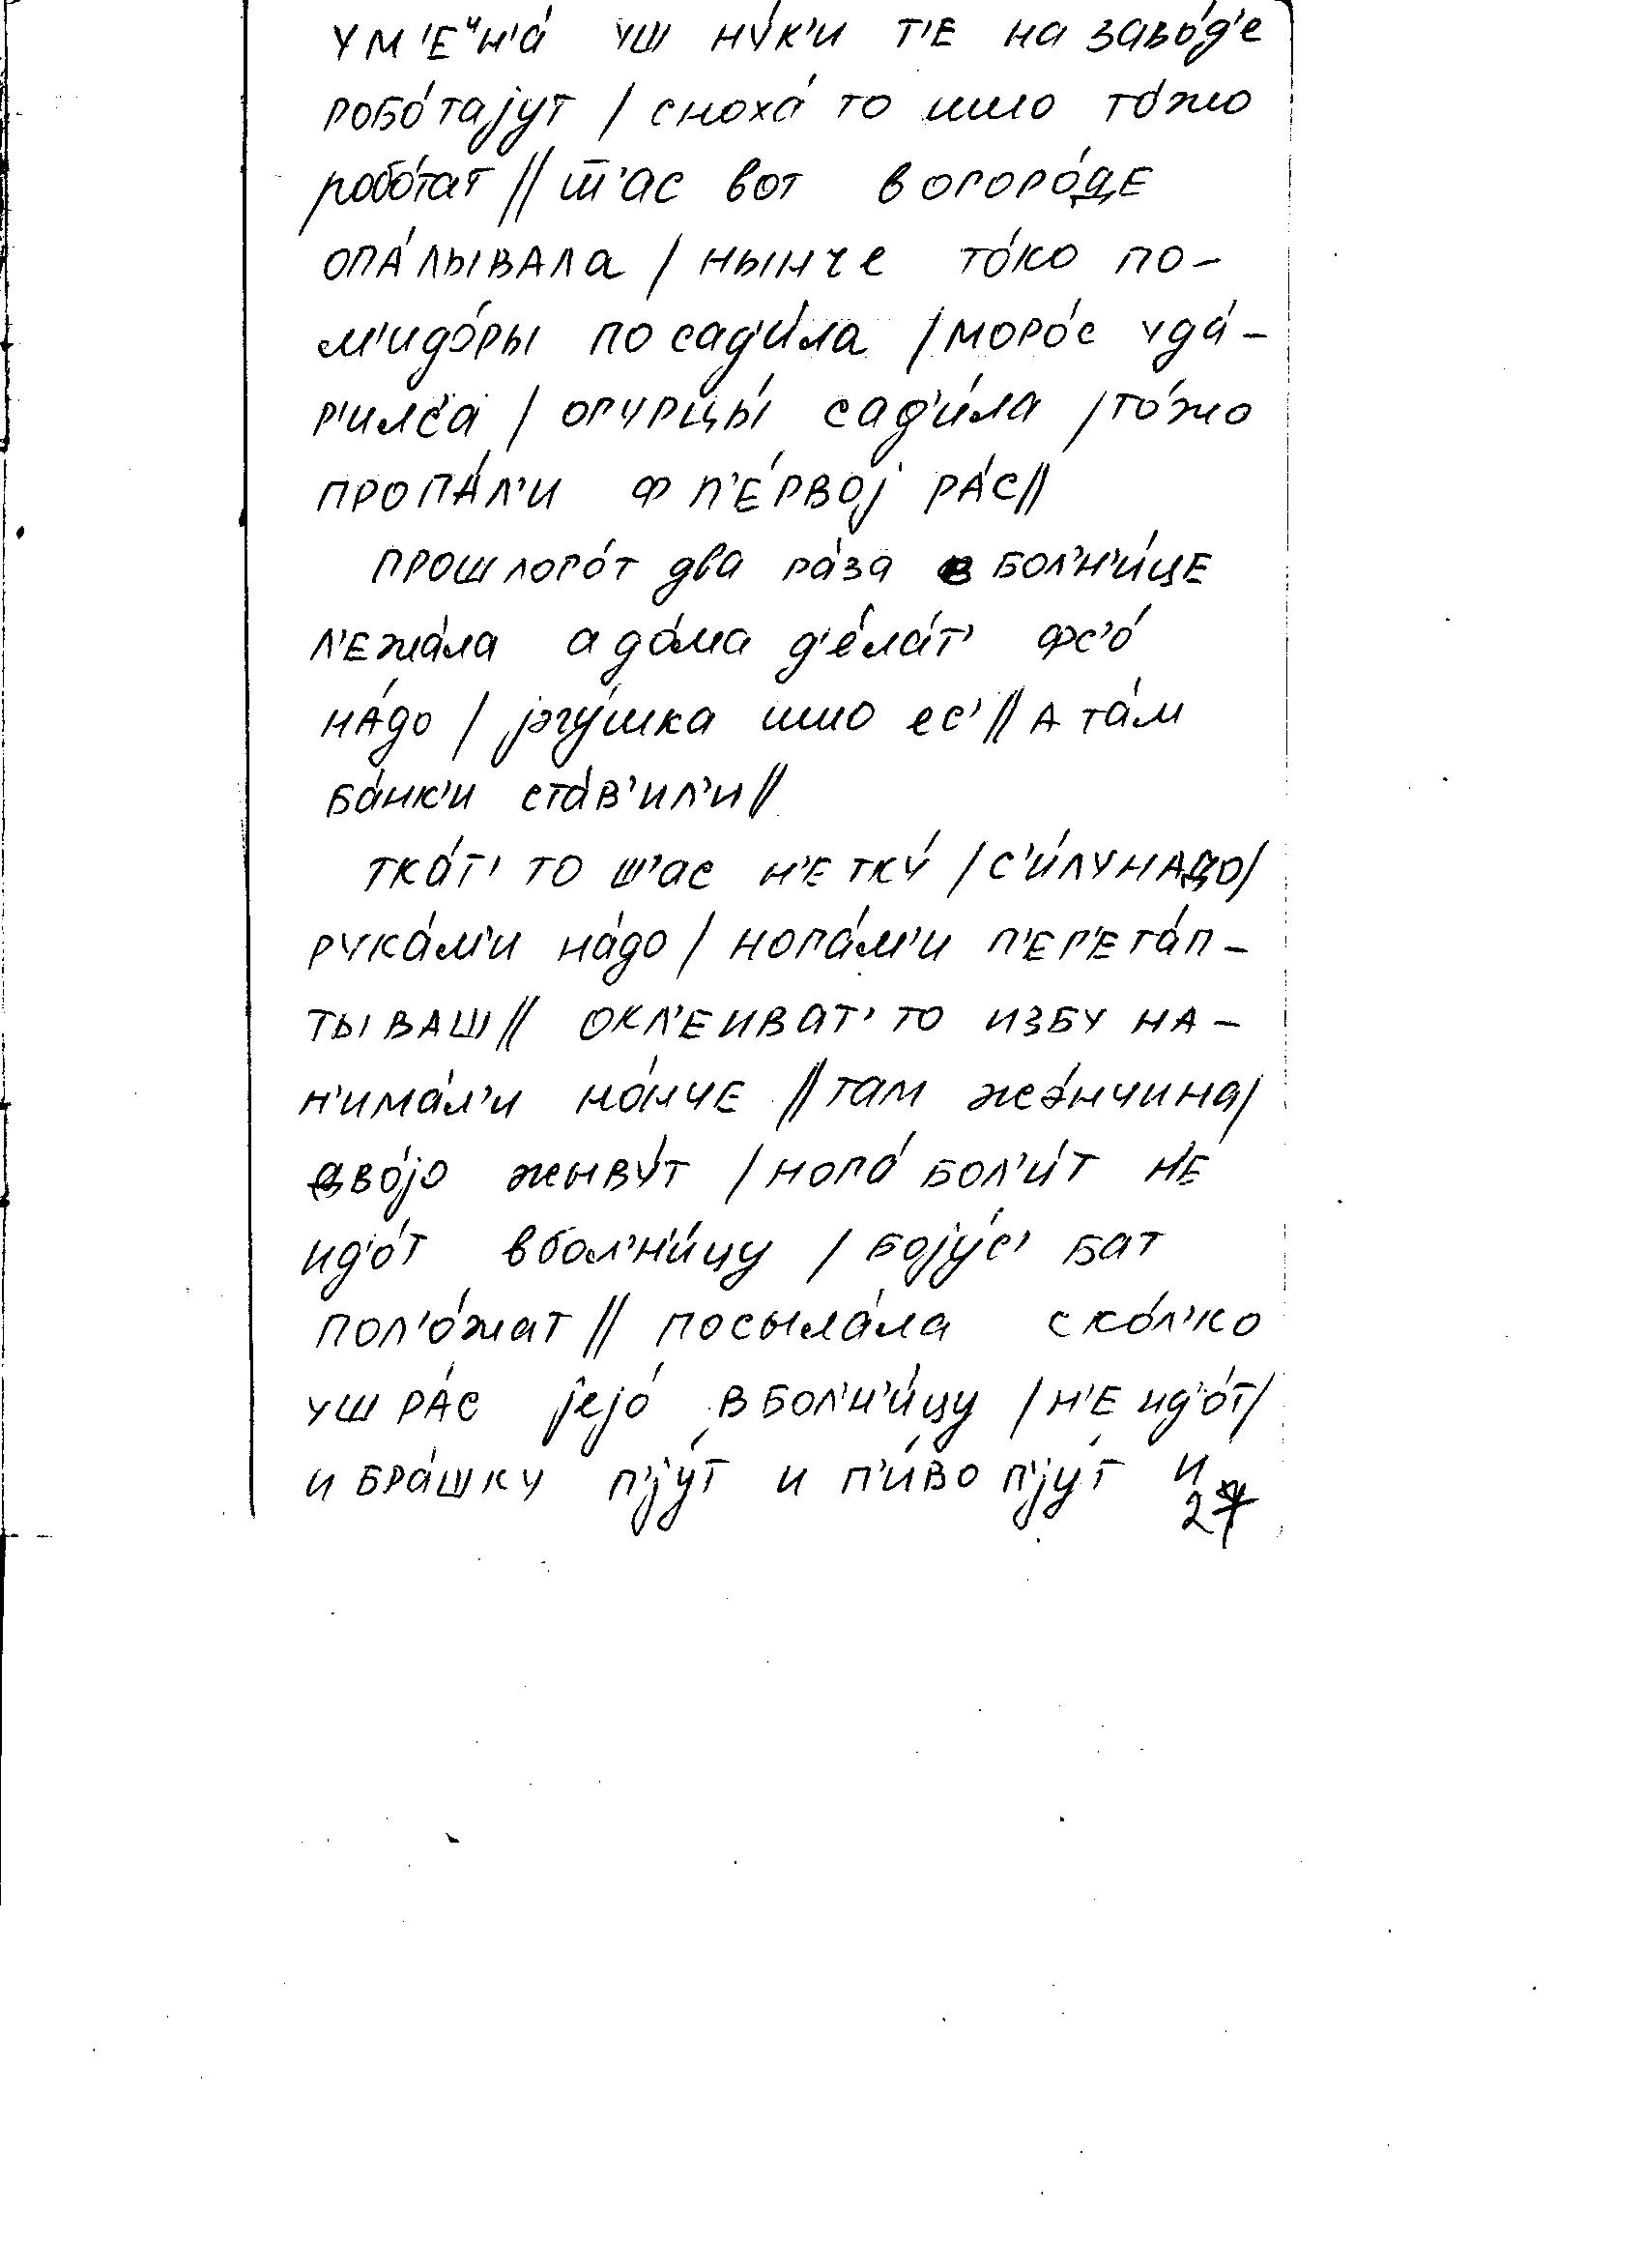 ум'еᶣн'а́ уш ну́к'и т'е на заво́д'е
робо́таjут / сноха́ то ишшо то́жо
робо́тат // ш'ас вот в огоро́де
опа́лывала / нынче то́ко по-
м'идо́ры посад'и́ла / моро́с уда́-
р'илс'а / огурцы́ сад'и́ла / то́жо
пропа́л'и ф п'е́рвоj ра́с //
прошлого́т два ра́за в бол'н'и́це
л'ежа́ла а до́ма д'е́ла́т' фс'о́
на́до / jагу́шка ишшо ес' // а та́м
ба́нк'и ста́в'ил'и //
тка́т' то ш'ас н'е тку́ / с'и́лу надо /
рука́м'и на́до / нога́м'и п'ер'ета́п-
тываш // окл'еиват' то избу на-
н'има́л'и но́нче // там жэ́нчина /
дво́jо жыву́т / нога́ бол'и́т н'е
ид'о́т в бол'н'и́цу / боjу́с' бат
пол'о́жат // посыла́ла ско́л'ко
уш ра́с jеjо́ в бол'н'и́цу / н'е ид'о́т /
и бра́шку п'jу́т и п'и́во п'jу́т и
27